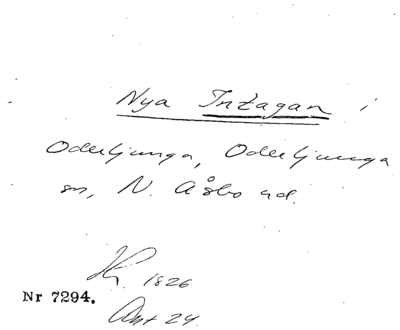 Nya Intagan i
Oderljunga, Oderljunga
sn, N. Åsbo hd.
1826
Nr 7294.
Ant 24